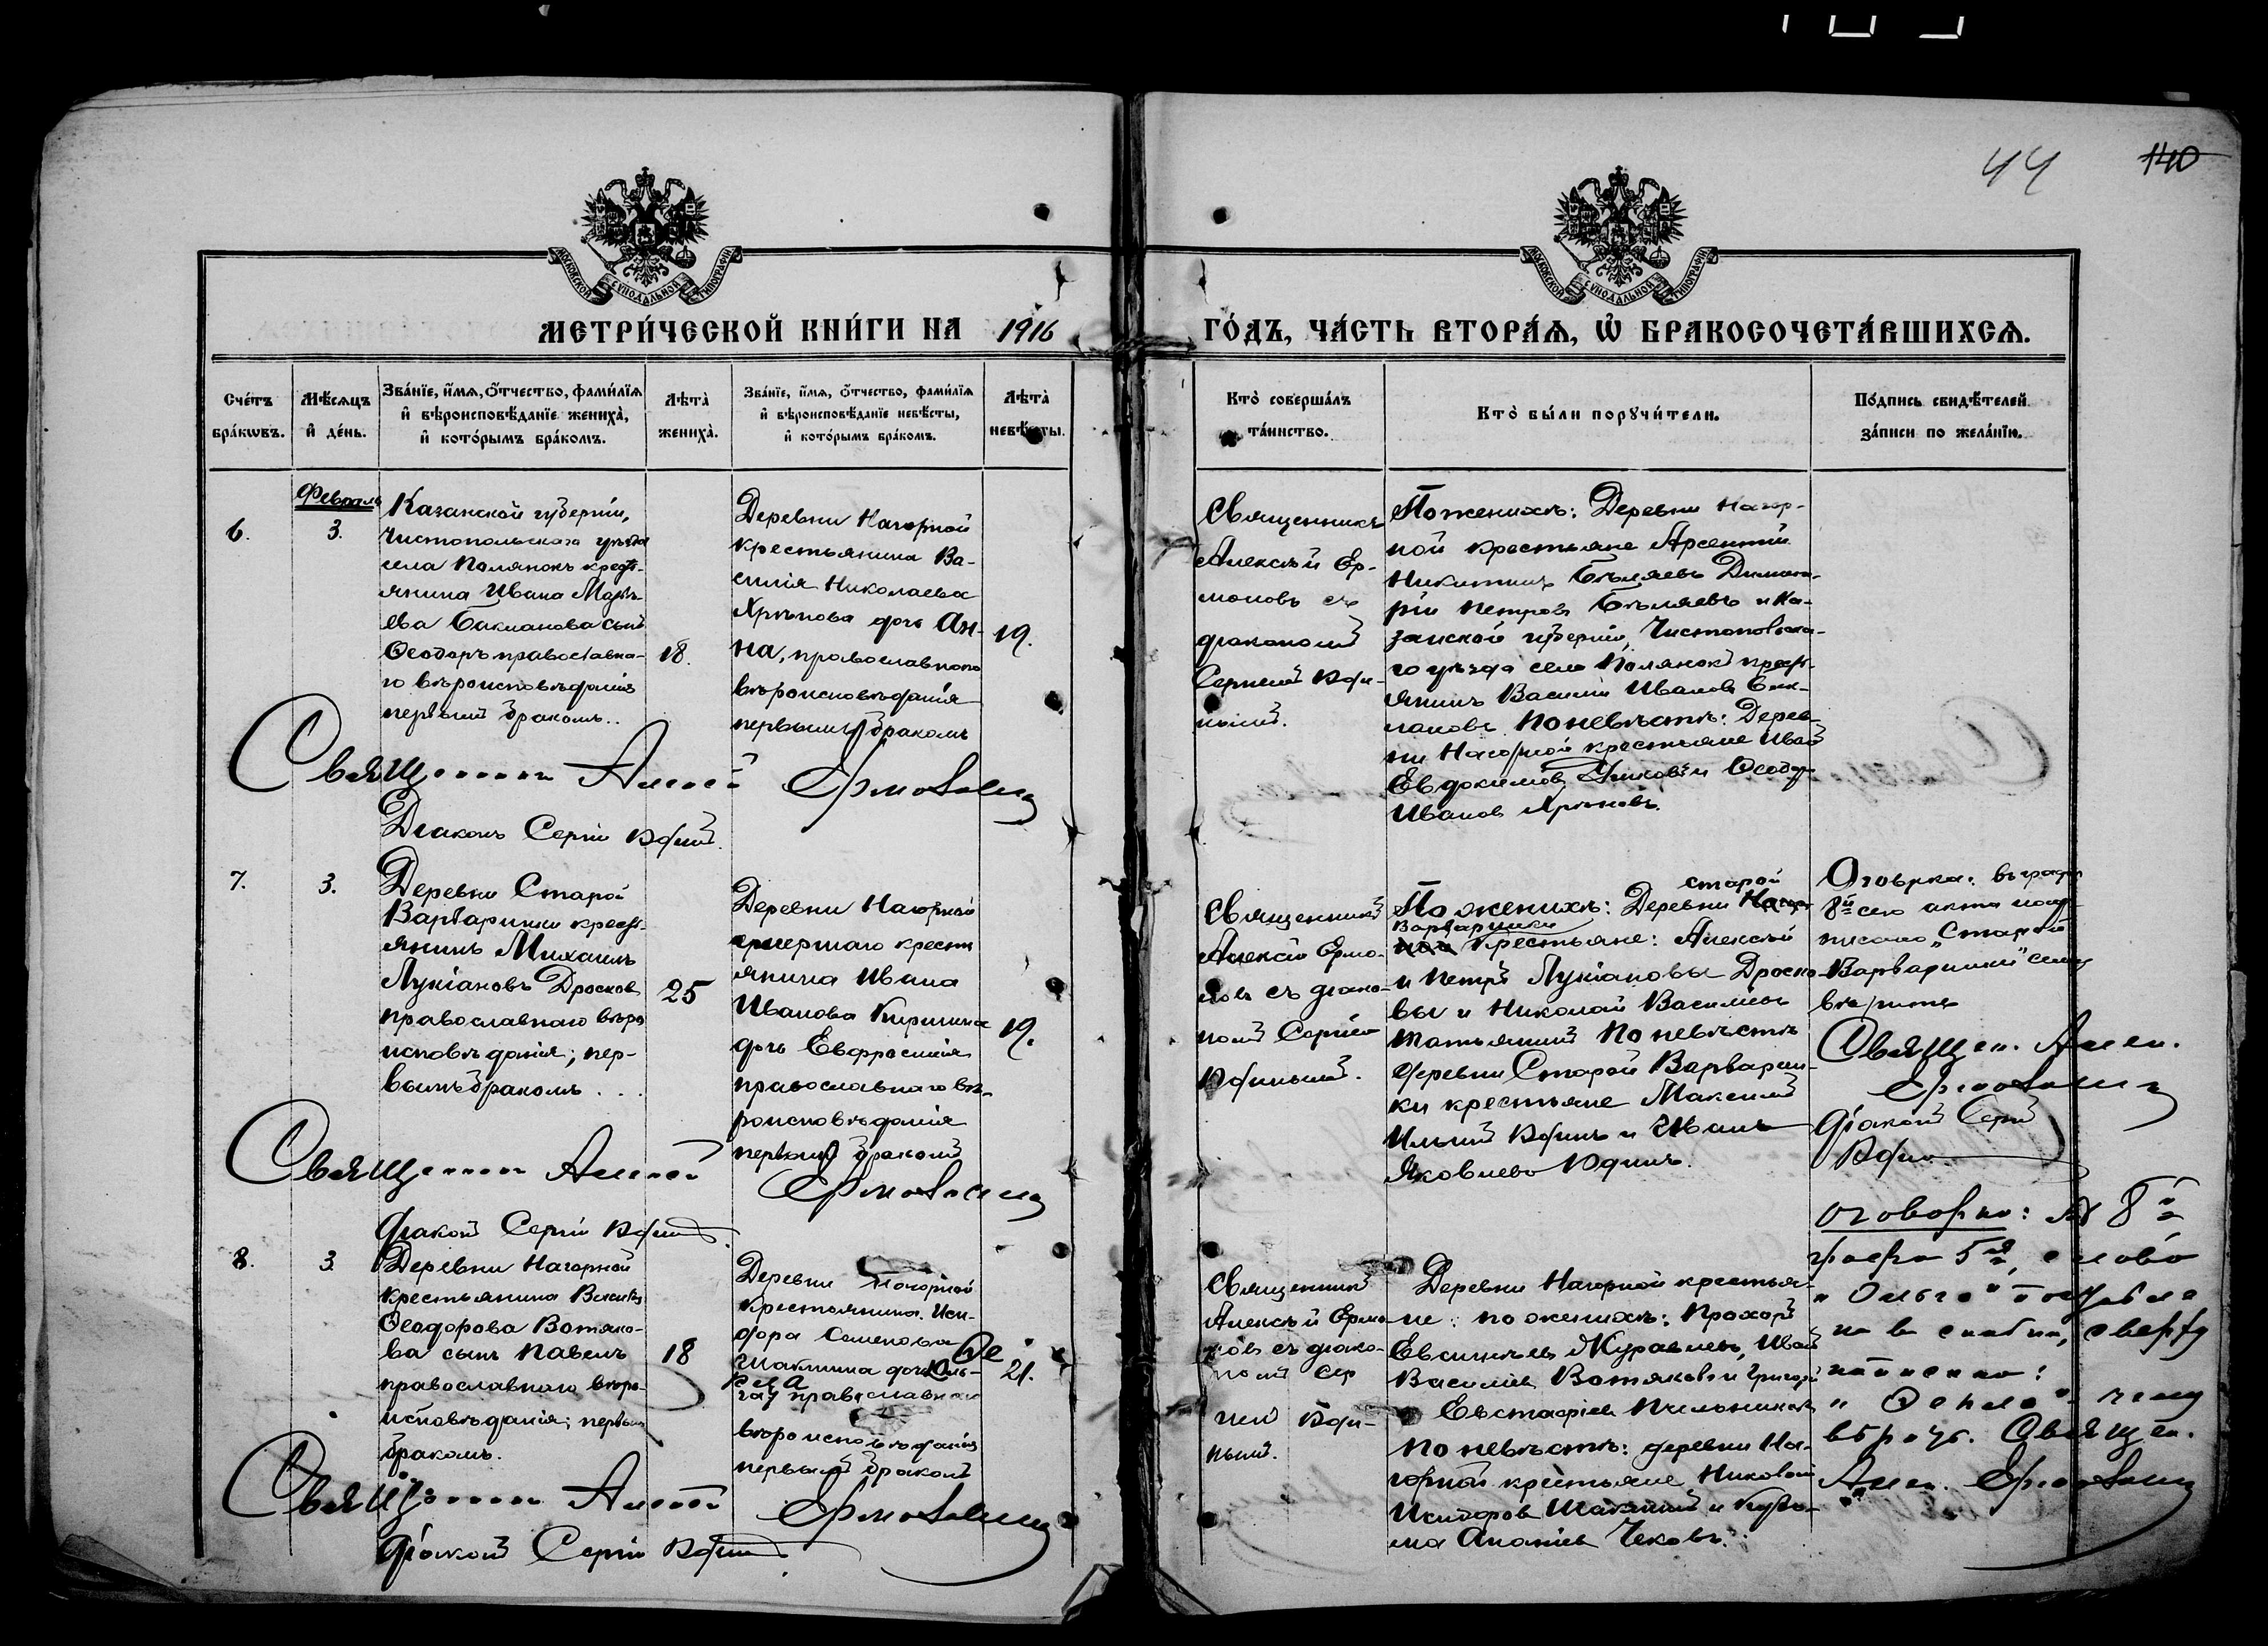 44 140
МОСКОВСКОЙ СѴНОДАЛЬНОЙ ТИПОГРАФІИ
МОСКОВСКОЙ СѴНОДАЛЬНОЙ ТИПОГРАФІИ
МЕТРИ́ЧЕСКОЙ КНИ́ГИ НА 1916
ГО́ДЪ, ЧА́СТЬ ВТОРА́Ѧ, Ѡ҆ БРАКОСОЧЕТА́ВШИХСѦ.
Сче́тъ бра́кѡвъ.
Мѣ́сѧцъ и҆ де́нь.
Зва́нїе, и҆́мѧ, ѻ҆́тчество, фами́лїѧ
и҆ вѣроисповѣ́данїе жениха̀,
и҆ кото́рымъ бра́комъ.
Лѣта̀ жениха̀.
Зва́нїе, и҆́мѧ, ѻ҆́тчество, фами́лїѧ
и҆ вѣроисповѣ́данїе невѣ́сты,
и҆ кото́рымъ бра́комъ.
Лѣта̀ невѣ́сты.
Кто̀ соверша́лъ
та́инство.
Кто̀ бы́ли порꙋчи́тели.
По́дпись свидѣ́телей
за́писи по жела́нїю.
Февраль
6.
3.
Казанской губерніи,
Чистопольскаго уѣзда
села Полянокъ крест-
янина Ивана Матвѣ-
ева Бакланова сынъ
Ѳеодоръ православна-
го вѣроисповѣданія
первымъ бракомъ..
18.
Деревни Нагорной
крестьянина Ва-
силія Николаева
Хрѣнова дочь Ан-
на, православнаго
вѣроисповѣданія
первымъ бракомъ
19.
Священникъ
Алексѣй Ер-
моловъ съ
діакономъ
Сергіемъ
По женихѣ: Деревни Нагор-
ной крестьяне Арсентій
Никитинъ Бѣляевъ Димит-
рій Петровъ Бѣляевъ и Ка-
занской губерніи, Чистопольска-
го уѣзда села Полянокъ крест-
янинъ Василій Ивановъ Бак-
лановъ. По невѣстѣ: Дерев-
ни Нагорной крестьяне Иванъ
Евдокимовъ и Ѳеодоръ
Ивановъ Хрѣновъ.
Священникъ Алексѣй Ермоловъ
Діаконъ Сергій
7.
3.
Деревни Старой
Варваринки крест-
янинъ Михаилъ
Лукіановъ Дросковъ
православнаго вѣро
исповѣданія; пер-
вымъ бракомъ ...
25
Деревни Нагорной
умершаго крестья
янина Ивана
Иванова Киршина
дочь Евфросинія
православнаго вѣ-
роисповѣданія
первымъ бракомъ
19.
Священникъ
Алексѣй Ермо-
ловъ съ діако-
номъ Сергіемъ
По женихѣ: Деревни Нагор старой
ной Варваринки крестьяне: Алексѣй
и Петръ Лукіановы Дроско-
вы и Николай Васильевъ
По невѣстѣ
деревни Старой Варварин-
ки крестьяне Максимъ
Ильинъ и Иванъ
Яковлевъ
Оговорка: въ графѣ
8й сего акта над-
писано „Старой
Варваринки" сему
вѣрить
Священ. Алек.
Ермоловъ
діаконъ Сергій
Священникъ Алексѣй Ермоловъ
діаконъ Сергій
8.
3.
Деревни Нагорной
крестьянина Василія
Ѳеодорова Вотяко-
ва сынъ Павелъ
православнаго вѣро-
исповѣданія; первымъ
бракомъ.
18
Деревни Нагорной
крестьянина Иси-
дора Семенова
Шакшина дочь Оль- Ѳе
га, кла православнаго
вѣроисповѣданія
первымъ бракомъ
21.
Священникъ
Алексѣй Ермо-
ловъ съ діако-
номъ Сер
гіемъ
Деревни Нагорной крестья-
не: по женихѣ: Прохоръ
Евсигнѣевъ Журавлевъ, Иванъ
Васильевъ Вотяковъ и Григорій
Евстафіевъ Пчельниковъ
По невѣстѣ: деревни На-
горной крестьяне Николай
Исидоровъ Шакшинъ и Кузь-
ма Ананіевъ Чековъ.
оговорка: №8й
графа 5я, слово
„Ольга" поставле
но въ скобки, сверху
написано:
„Ѳекла" чему
вѣрить. Священ.
Алек. Ермоловъ
Священникъ Алексѣй Ермоловъ
діаконъ Сергій